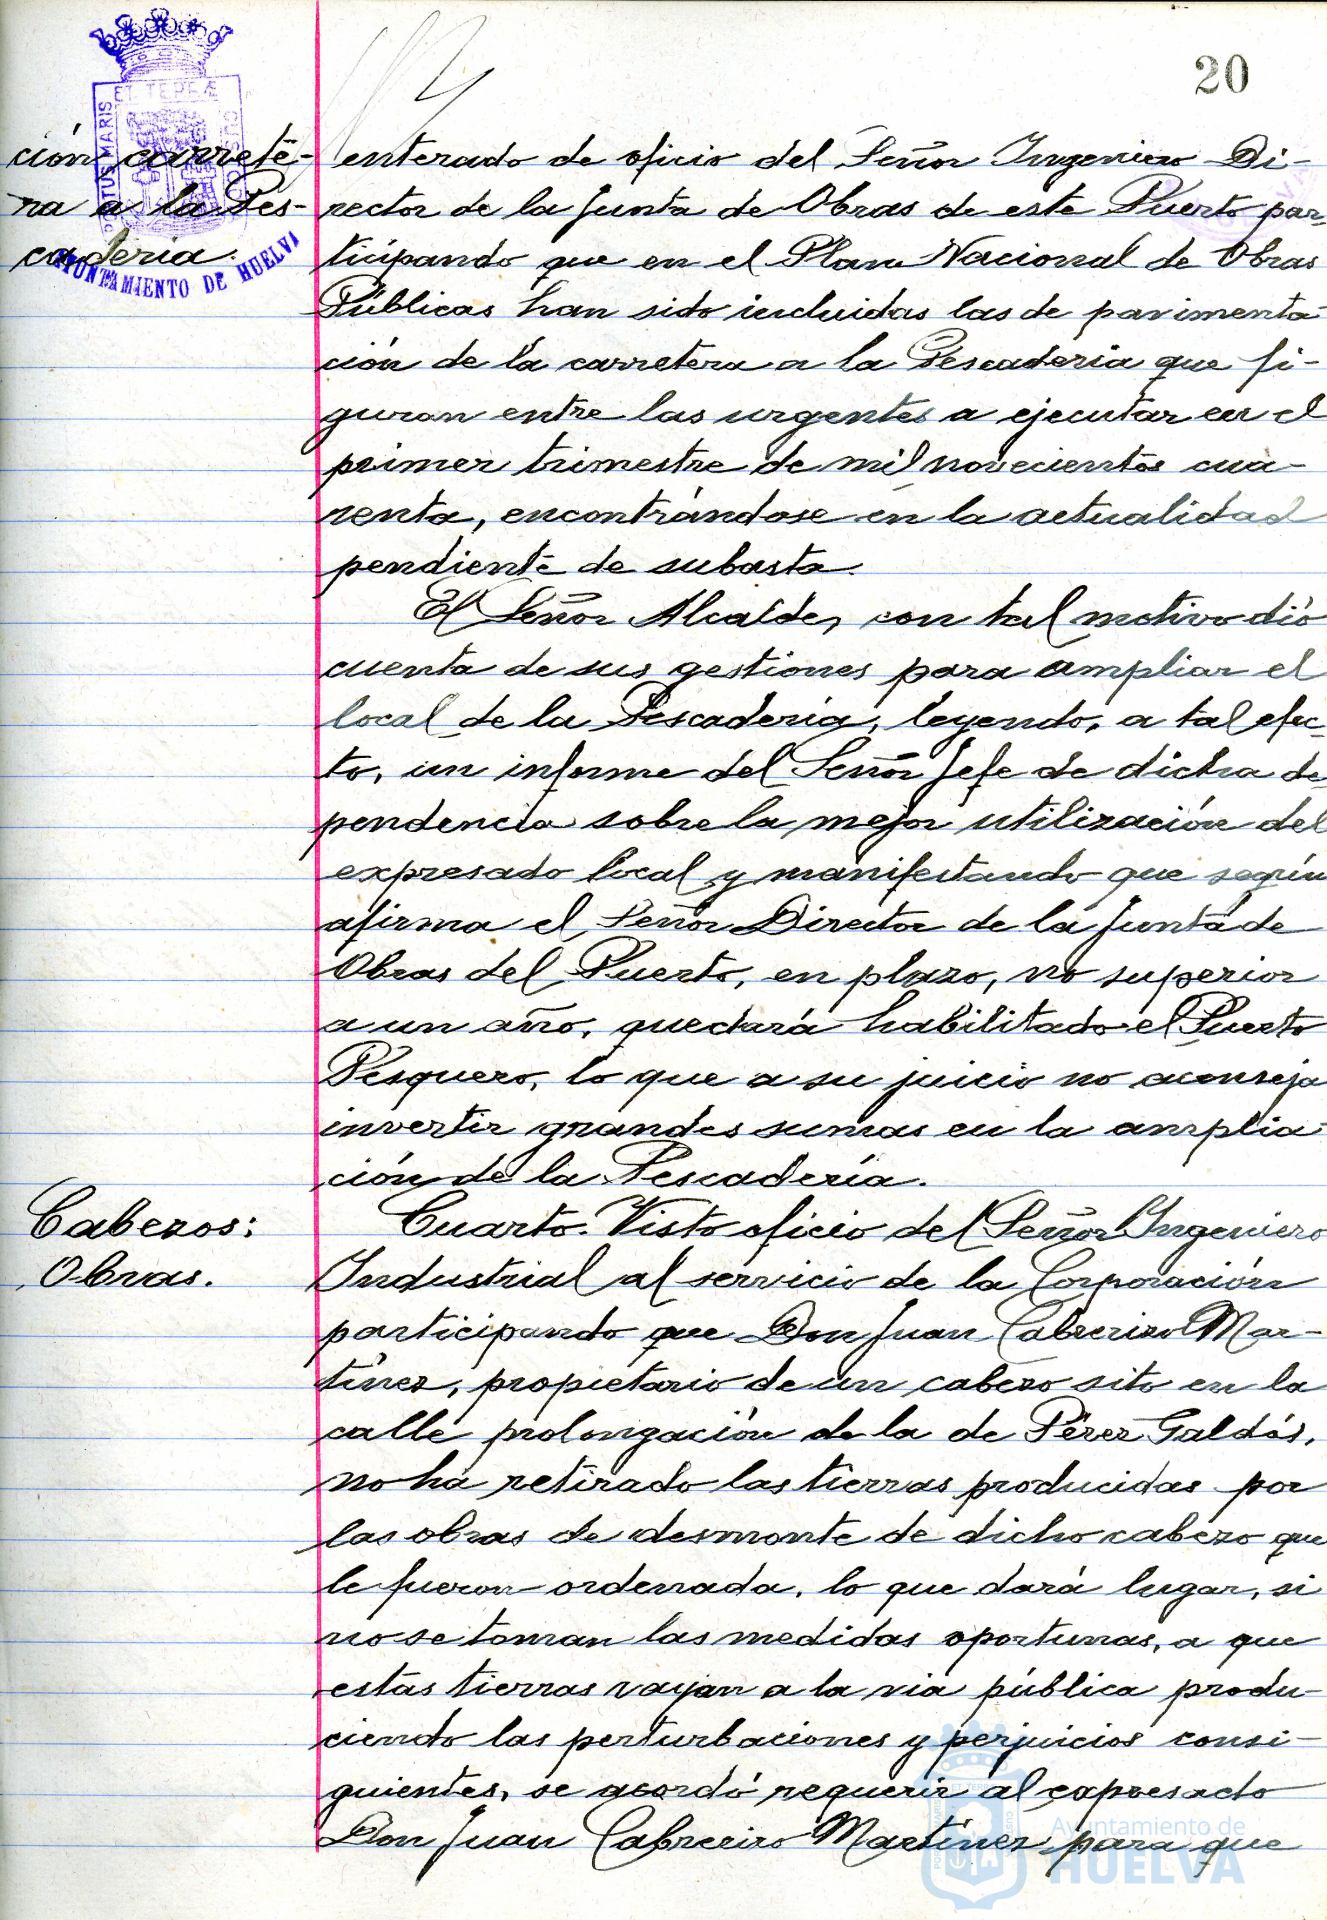 20
ción carrete-
ra a la Pes-
cadería.
PORTUS MARIS ET TERRÆ CUSTODIA
AYUNTAMIENTO DE HUELVA
enterado de oficio del Señor Ingeniero Di-
rector de la Junta de Obras de este Puerto par-
ticipando que en el Plan Nacional de Obras
Públicas han sido incluidas las de pavimenta-
ción de la carretera a la Pescadería que fi-
guran entre las urgentes a ejecutar en el
primer trimestre de mil novecientos cua-
renta, encontrándose en la actualidad
pendiente de subasta.
El Señor Alcalde, con tal motivo dió
cuenta de sus gestiones para ampliar el
local de la Pescadería, leyendo, a tal efec-
to, un informe del Señor Jefe de dicha de-
pendencia sobre la mejor utilización del
expresado local y manifestando que según
afirma el Señor Director de la Junta de
Obras del Puerto, en plazo, no superior
a un año, quedará habilitado el Puerto
Pesquero, lo que a su juicio no aconseja
invertir grandes sumas en la amplia-
ción de la Pescadería.
Cabezos:
Obras.
Cuarto. Visto oficio del Señor Ingeniero
Industrial al servicio de la Corporación
participando que Don Juan Cabrerizo Mar-
tínez, propietario de un cabezo sito en la
calle prolongación de la de Pérez Galdós,
no ha retirado las tierras producidas por
las obras de desmonte de dicho cabezo que
le fueron ordenada, lo que dará lugar, si
no se toman las medidas oportunas, a que
estas tierras vayan a la via pública produ-
ciendo las perturbaciones y perjuicios consi-
guientes, se acordó requerir al expresado
Don Juan Cabrerizo Martínez para que
Ayuntamiento de
HUELVA